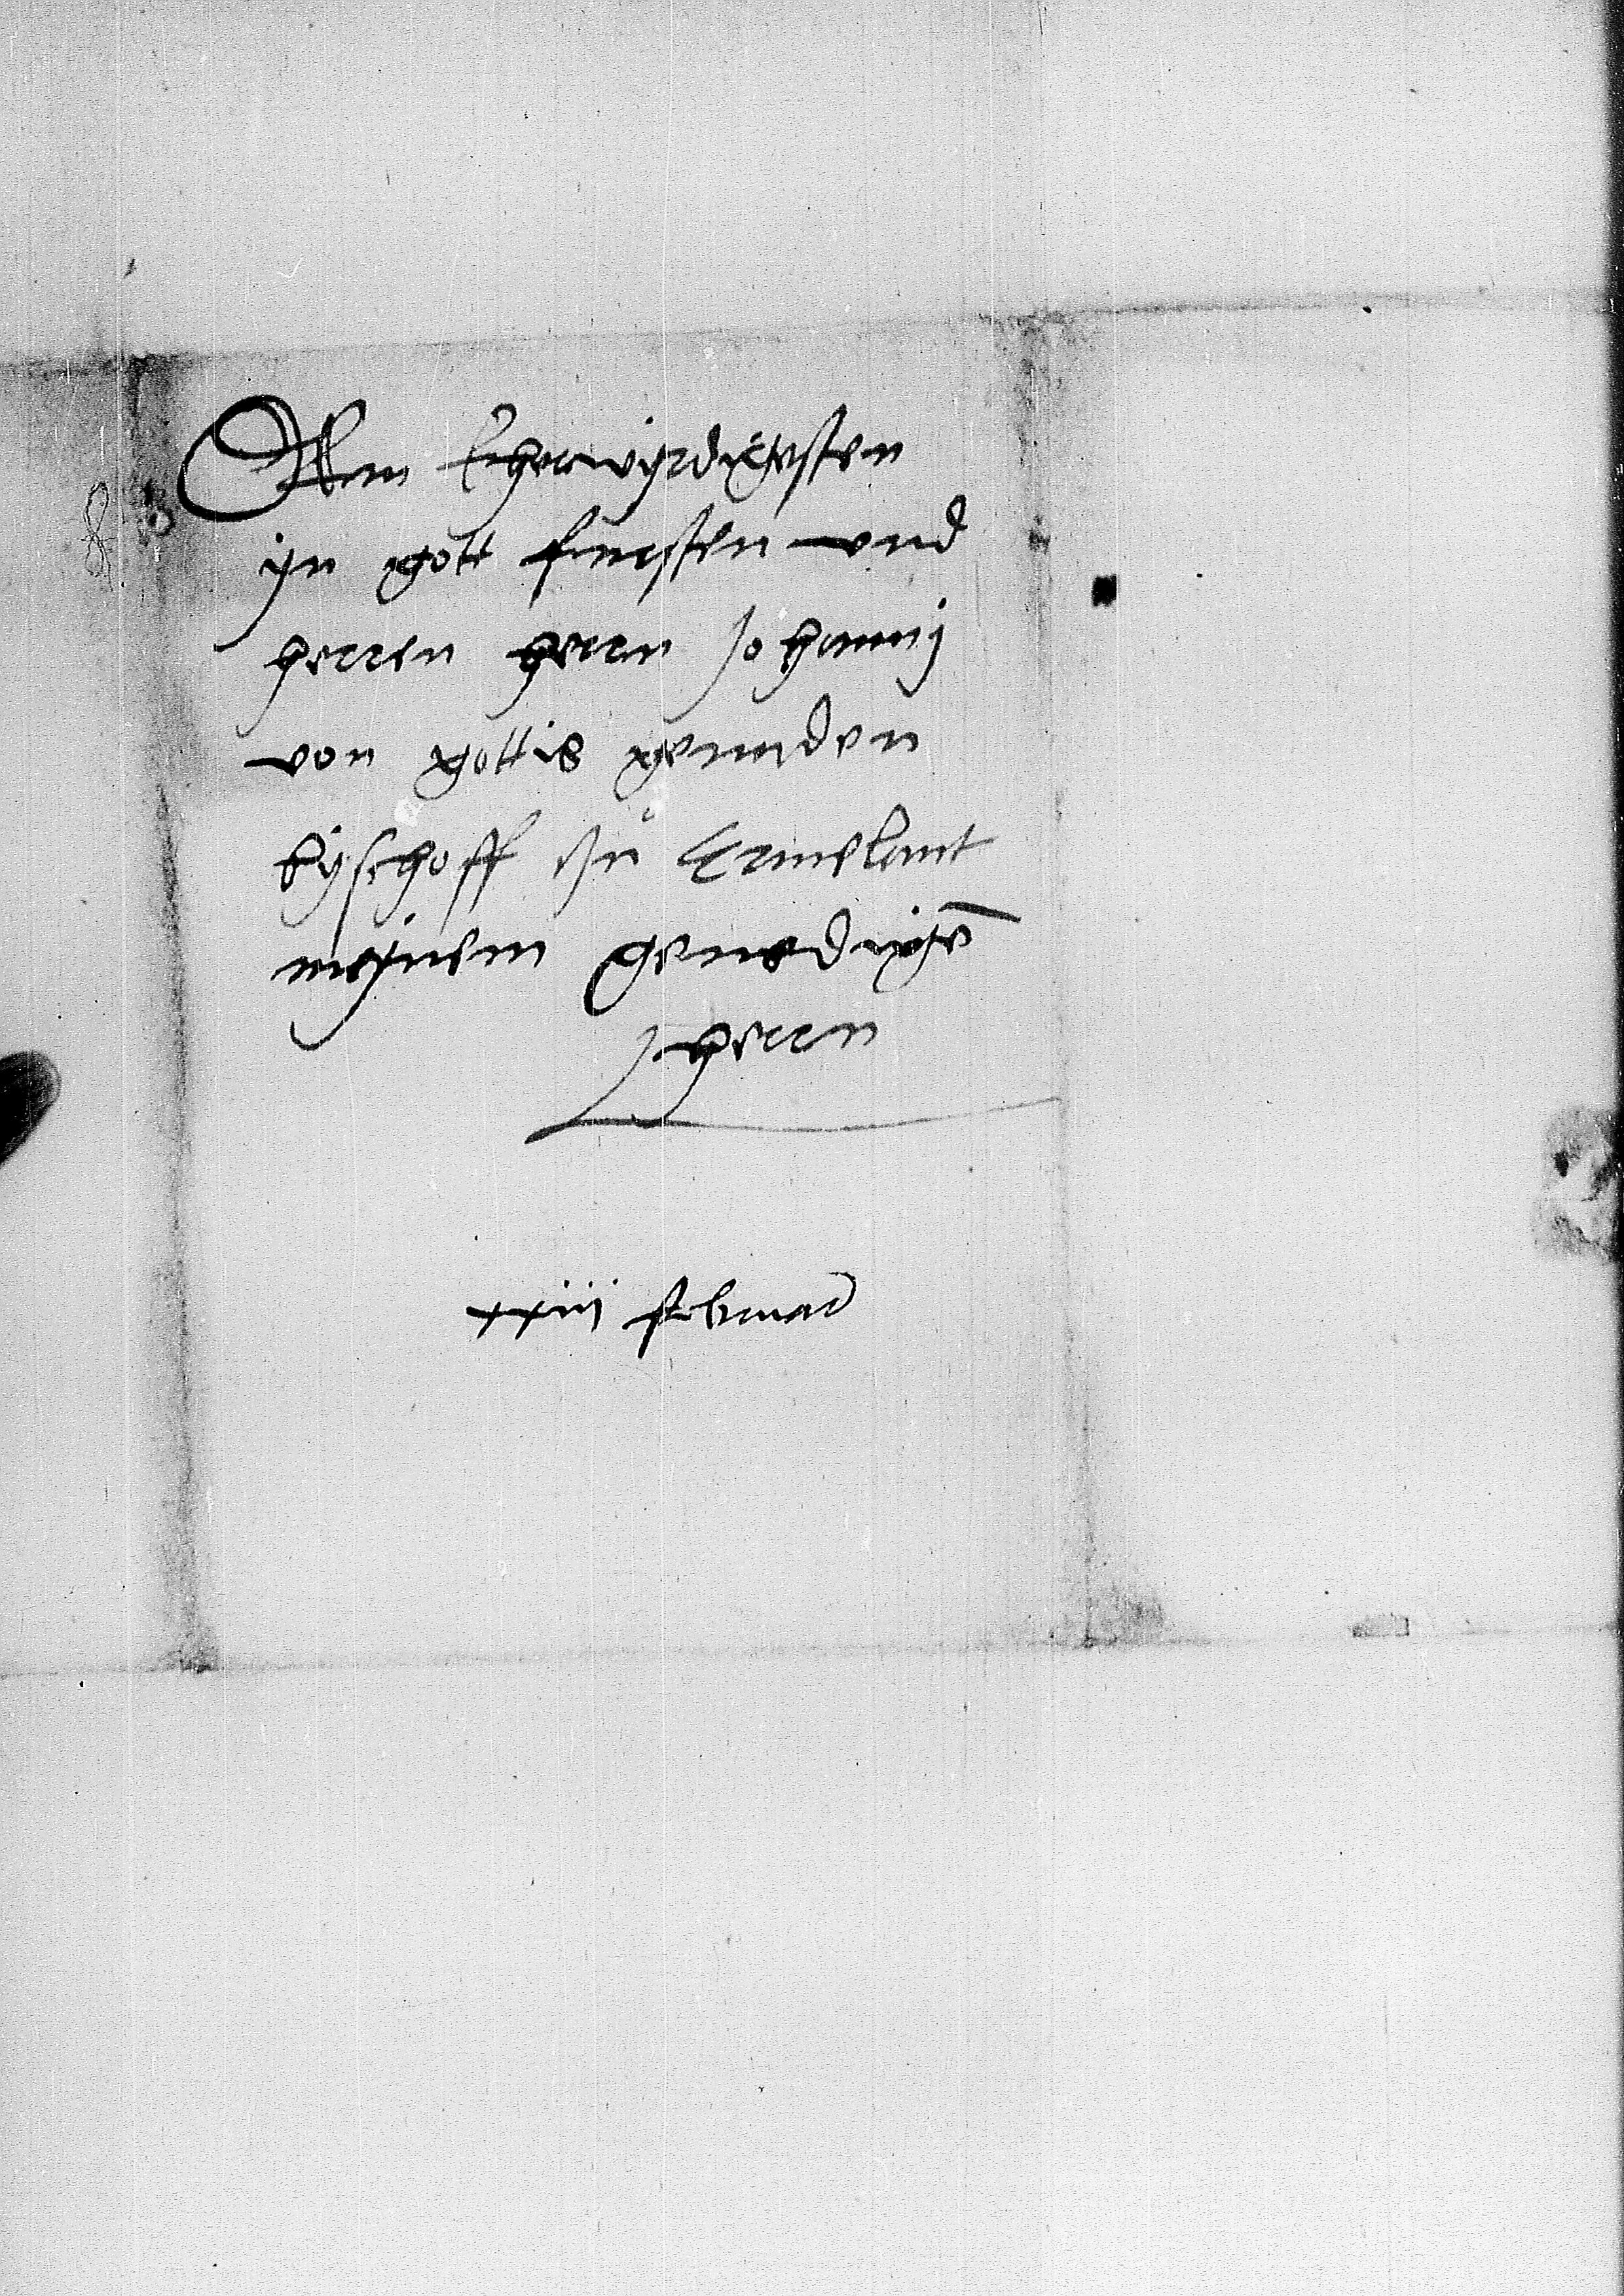 Dem Eherwyrdigesten
yn gott fursten vnd
herren hern Johanni
von gottis genaden
byschoff zu Ermelant
meynem genedigē
hern
xxiii februar